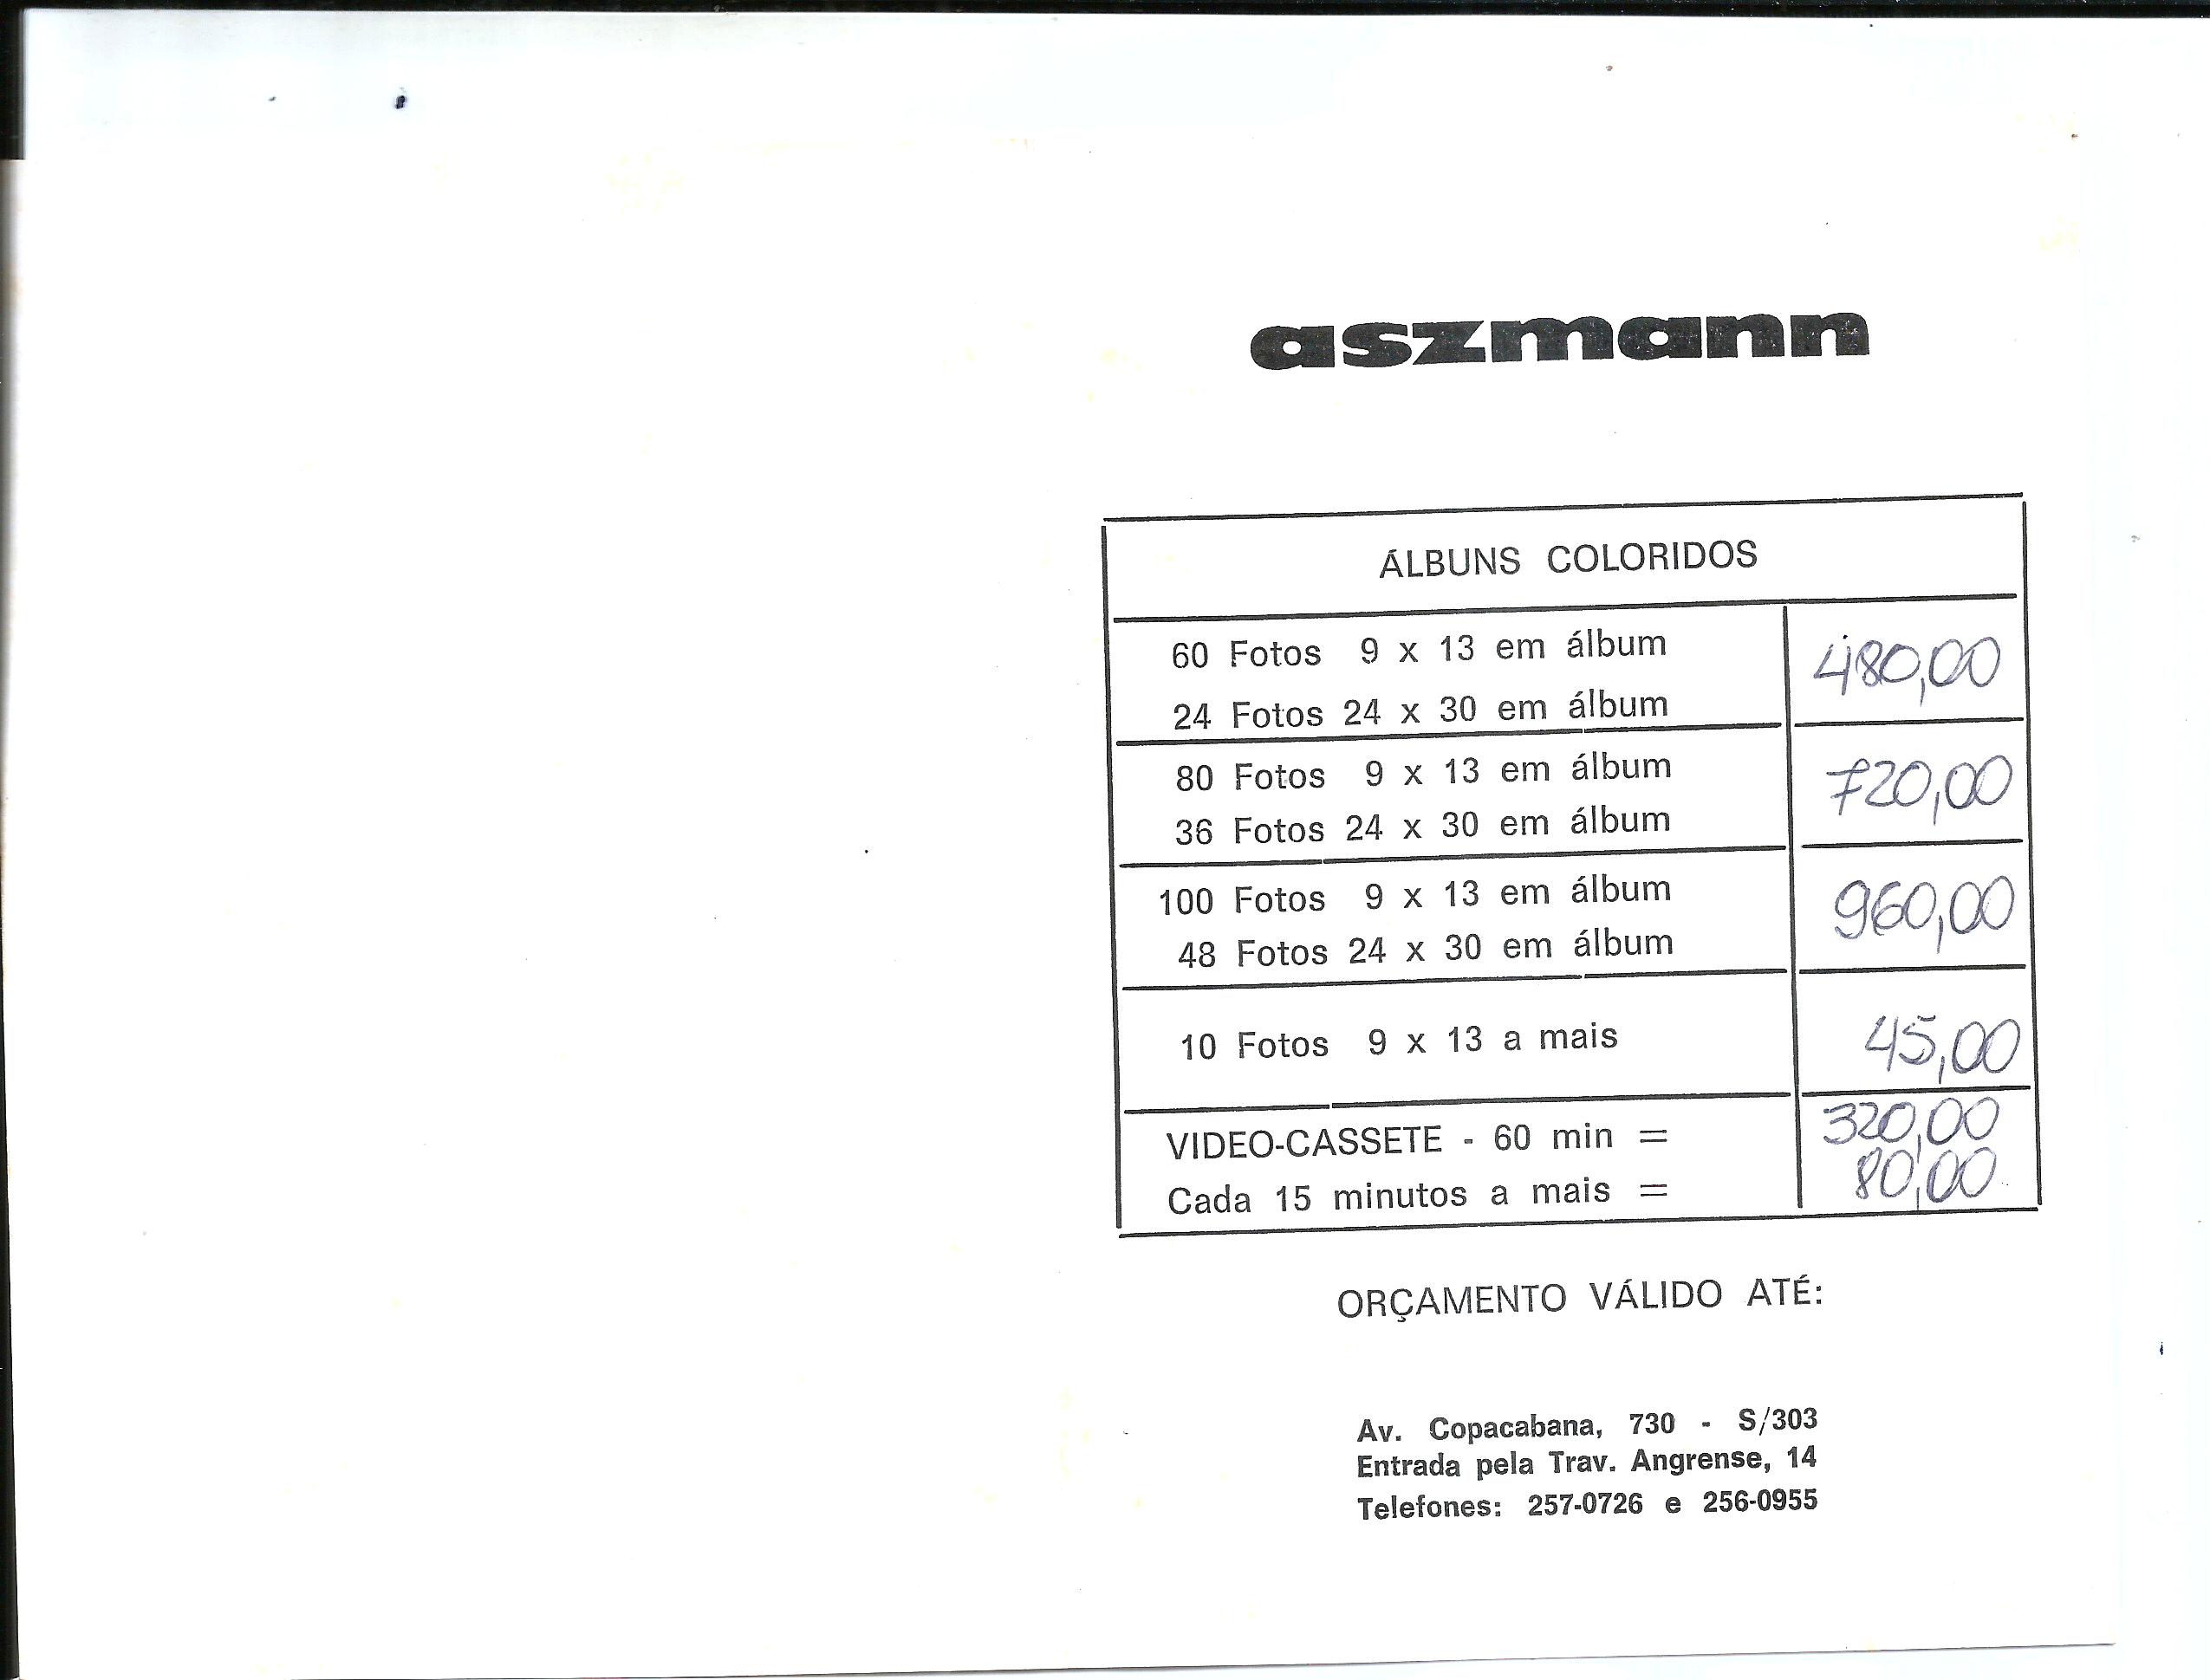 aszmann
ÁLBUNS COLORIDOS
60 Fotos 9 x 13 em álbum
24 Fotos 24 x 30 em álbum
480,00
80 Fotos 9 x 13 em álbum
36 Fotos 24 x 30 em álbum
720,00
100 Fotos 9 x 13 em álbum
48 Fotos 24 x 30 em álbum
960,00
10 Fotos 9 x 13 a mais 45,00
VIDEO-CASSETE - 60 min = 320,00
Cada 15 minutos a mais = 80,00
ORÇAMENTO VÁLIDO ATÉ:
Av. Copacabana, 730 - S/303
Entrada pela Trav. Angrense, 14
Telefones: 257-0726 e 256-0955